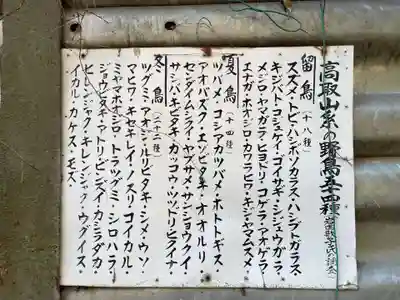 高取山系の野鳥五四種
留鳥(十八種)
スズメ・トビ・ハシボソカラス・ハシブトガラス
キジバト・コジュケイ・ゴイサギ・シジュウガラ・
メジロ・ヤマガラ・ヒヨトリ・コゲラ・アオゲラ
エナガ・ホオジロ・カワラヒワ・キジ・ヤマムスメ
夏鳥(十四種)
ツバメ・コシアカツバメ・ホトトギス
アオバズク・エゾビタキ・オオルリ
センダイムシクイ・ヤブサメ・サンショウクイ
サシバ・キビタキ・カッコウ・ツツドリ・クイナ
冬鳥(二十二種)
ツグミ・アカハラ・ルリビタキ・シメ・ウソ・
マヒワ・キセキレイ・ノスリ・コイカル・
ミヤマホオジロ・トラツグミ・シロハラ・
ジョウビタキ・アトリ・ビンズイ・カシラダカ・
ヒレンジャク・キレンジャク・ウグイス・
イカル・カケス・モズ・